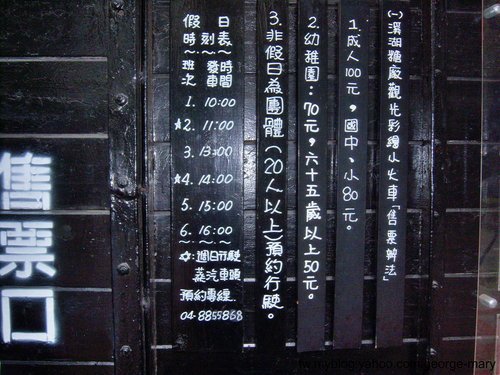 (一)溪湖糖廠觀光彩繪小火車「售票辦法」
1.成人100元，國中、小80元。
2.幼稚園：70元，六十五歲以上50元。
3.非假日為團體(20人以上)預約行駛。
假日
時刻表
班次 發車時間
1. 10:00
☆2. 11:00
3. 13:00
☆4. 14:00
5. 15:00
6. 16:00
☆:週日行駛
蒸汽車頭
預約專線..
04-8855868
售票口
blog.yahoo.com/george-mary